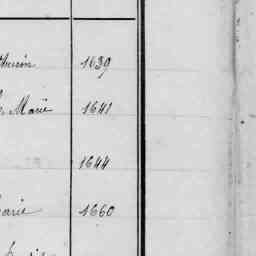 thurin 1639
Marie 1641
1644
Marie 1660